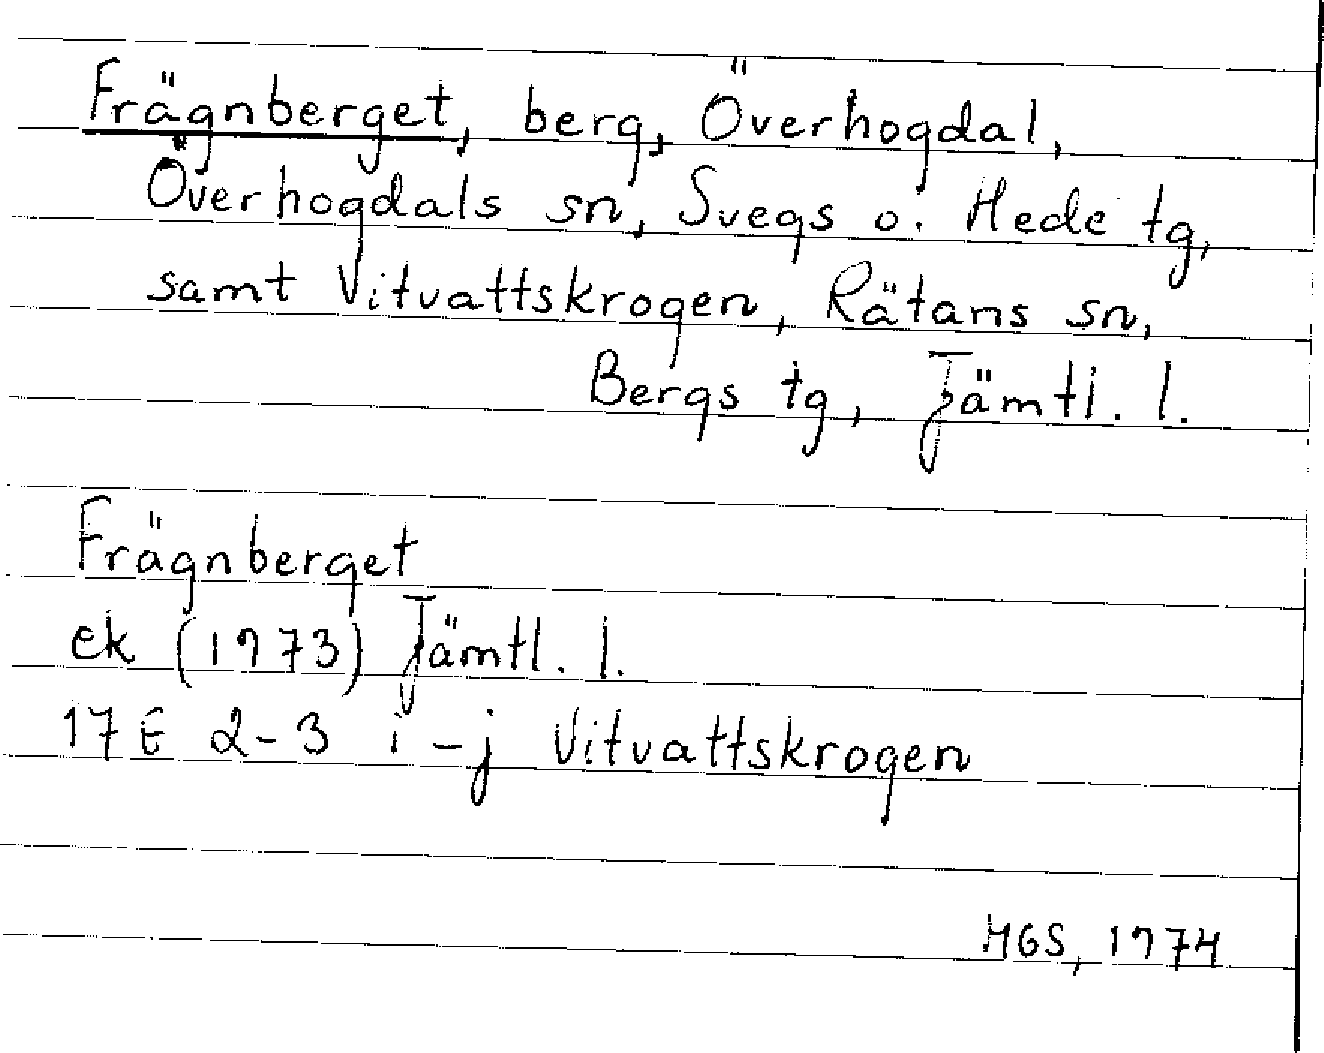 Frägnberget, berg, Överhogdal,
Överhogdals sn, Svegs o. Hede tg,
samt Vitvattskrogen, Rätans sn,
Bergs tg, Jämtl. l.
Frägnberget
ek (1973) Jämtl. l.
17 E 2-3 i-j Vitvattskrogen
MGS, 1974